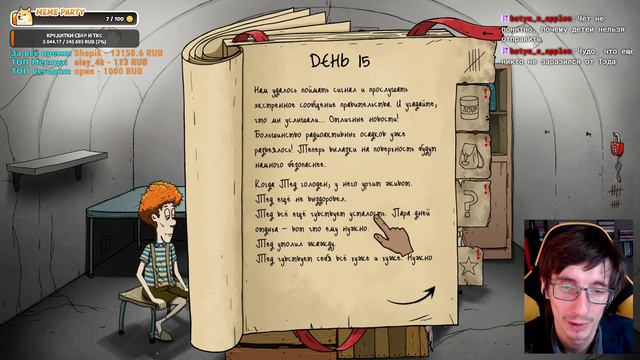 MEME PARTY
7 / 100
КРЕДИТКИ СБЕР И ТКС
За всё время: Shapik - 13158.6 RUB
ТОП Месяца: aloy_4k - 173 RUB
ТОП Сегодня: прив - 1000 RUB
ДЕНЬ 15
Нам удалось поймать сигнал и прослушать
экстренное сообщение правительства. И угадайте,
что мы услышали... Отличные новости!
Большинство радиоактивных осадков уже
развеялось! Теперь вылазки на поверхность будут
намного безопаснее.
Когда Тед голоден, у него урчит живот.
Тед ещё не выздоровел.
Тед всё ещё чувствует усталость. Пара дней
отдыха – вот что ему нужно.
Тед утолил жажду.
Тед чувствует себя всё хуже и хуже. Нужно
SOUP
?
botya_s_apples: Чет не
понятно, почему детей нельзя
отправить
botya_s_apples: Чудо, что ещё
никто не заразился от Тэда